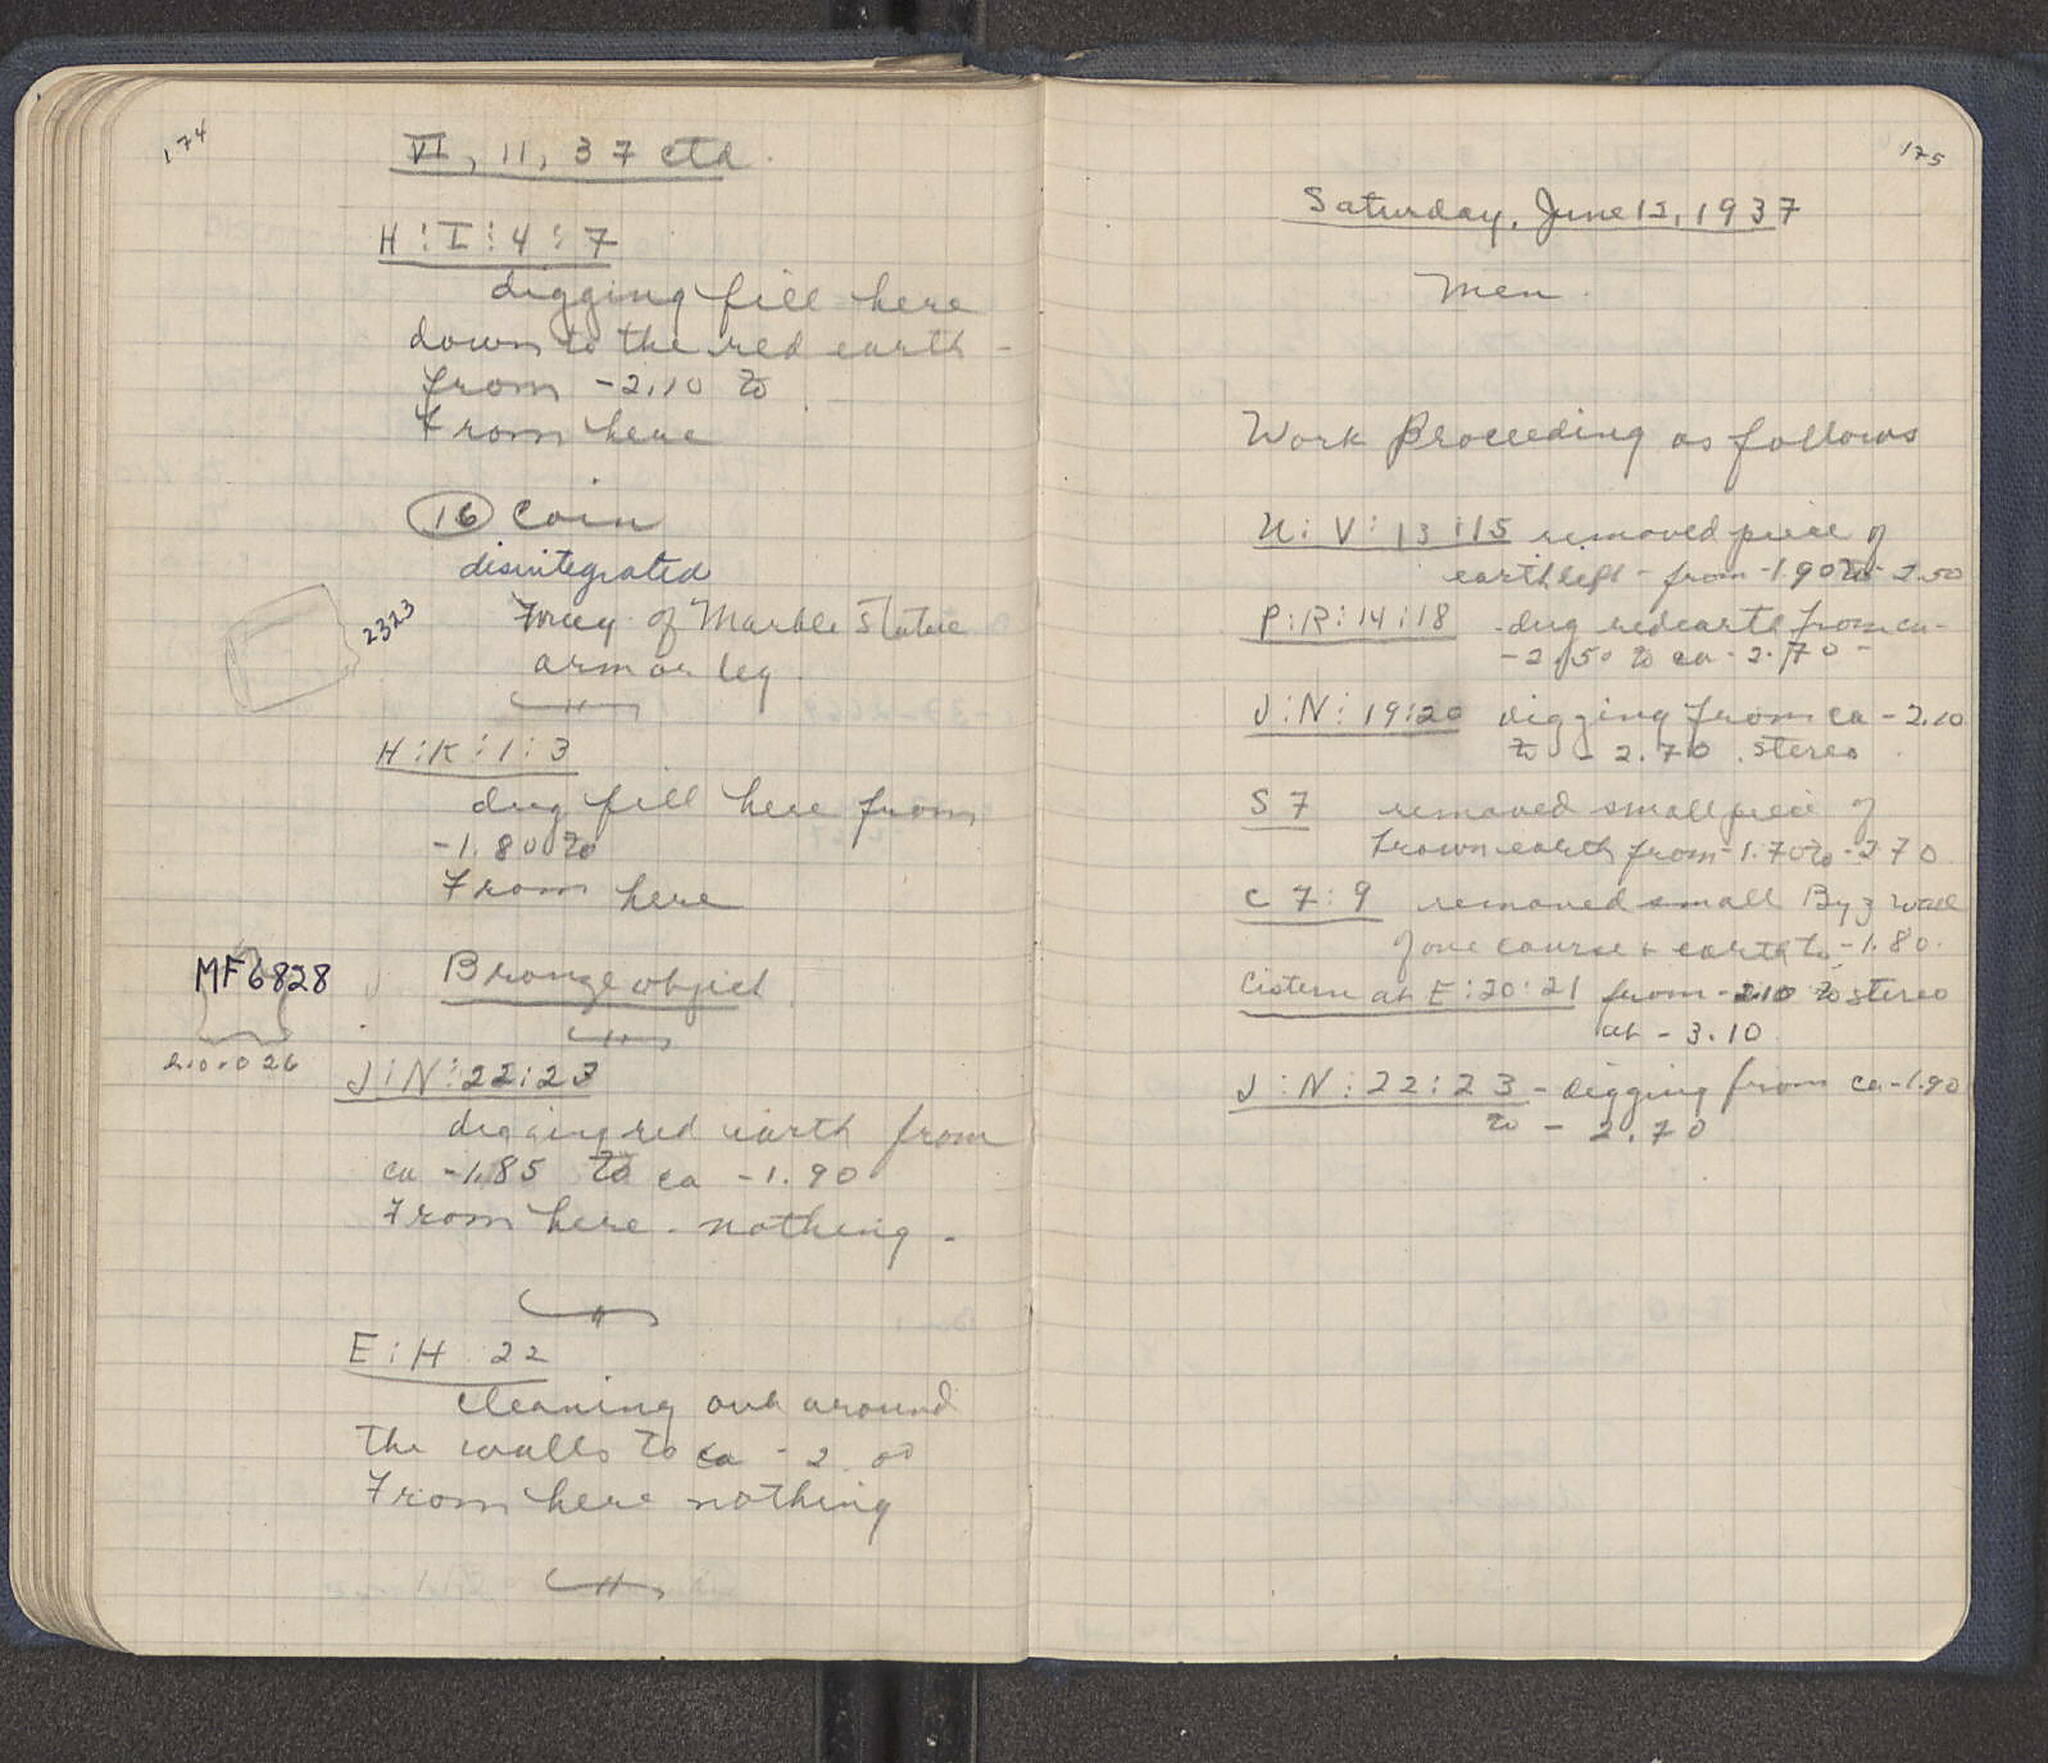 174
VI, 11, 37 ctd.
H:I:4:7
digging fill here
down to the red earth -
from -2.10 to
From here
16 coin
disintegrated
2323
Frag. of Marble Statue
arm or leg
H:K:1:3
dug fill here from
-1.80 to
From here
MF6828
Bronze object
h. 0.026
J:N:22:23
digging red earth from
ca -1.85 to ca -1.90
From here - nothing -
E:H 22
cleaning out around
the walls to ca -2.00
From here nothing
175
Saturday, June 12, 1937
Men.
Work Proceeding as follows
U:V:13:15 removed piece of
earth left - from -1.90 to -2.50
P:R:14:18 - dug red earth from ca -
-2.50 to ca -2.70 -
J:N:19:20 digging from ca -2.10
to -2.70. stereo
S 7 removed small piece of
brown earth from -1.70 to -2.70
C 7:9 removed small Byz wall
of one course + earth to -1.80.
Cistern at E:20:21 from -2.10 to stereo
at -3.10
J:N:22:23 - digging from ca -1.90
to -2.70